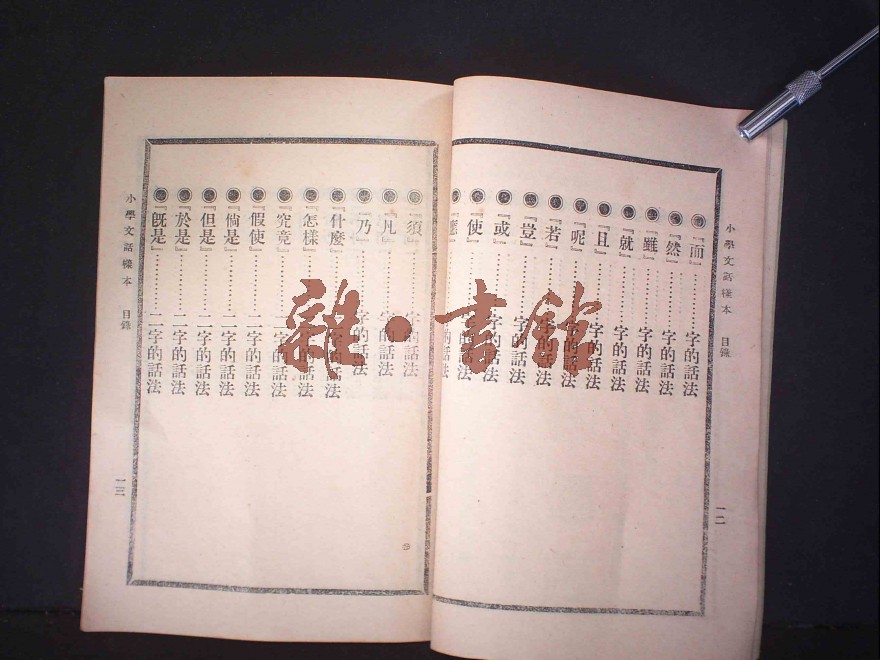 小學文話樣本 目錄
一二
『而』字的話法
『然』字的話法
『雖』字的話法
『就』字的話法
『且』字的話法
『呢』字的話法
『若』字的話法
『豈』字的話法
『或』字的話法
『使』字的話法
『須』字的話法
『凡』字的話法
『乃』字的話法
『什麼』二字的話法
『怎樣』二字的話法
『究竟』二字的話法
『假使』二字的話法
『倘是』二字的話法
『但是』二字的話法
『於是』二字的話法
『旣是』二字的話法
小學文話樣本 目錄
一三
雜·書館